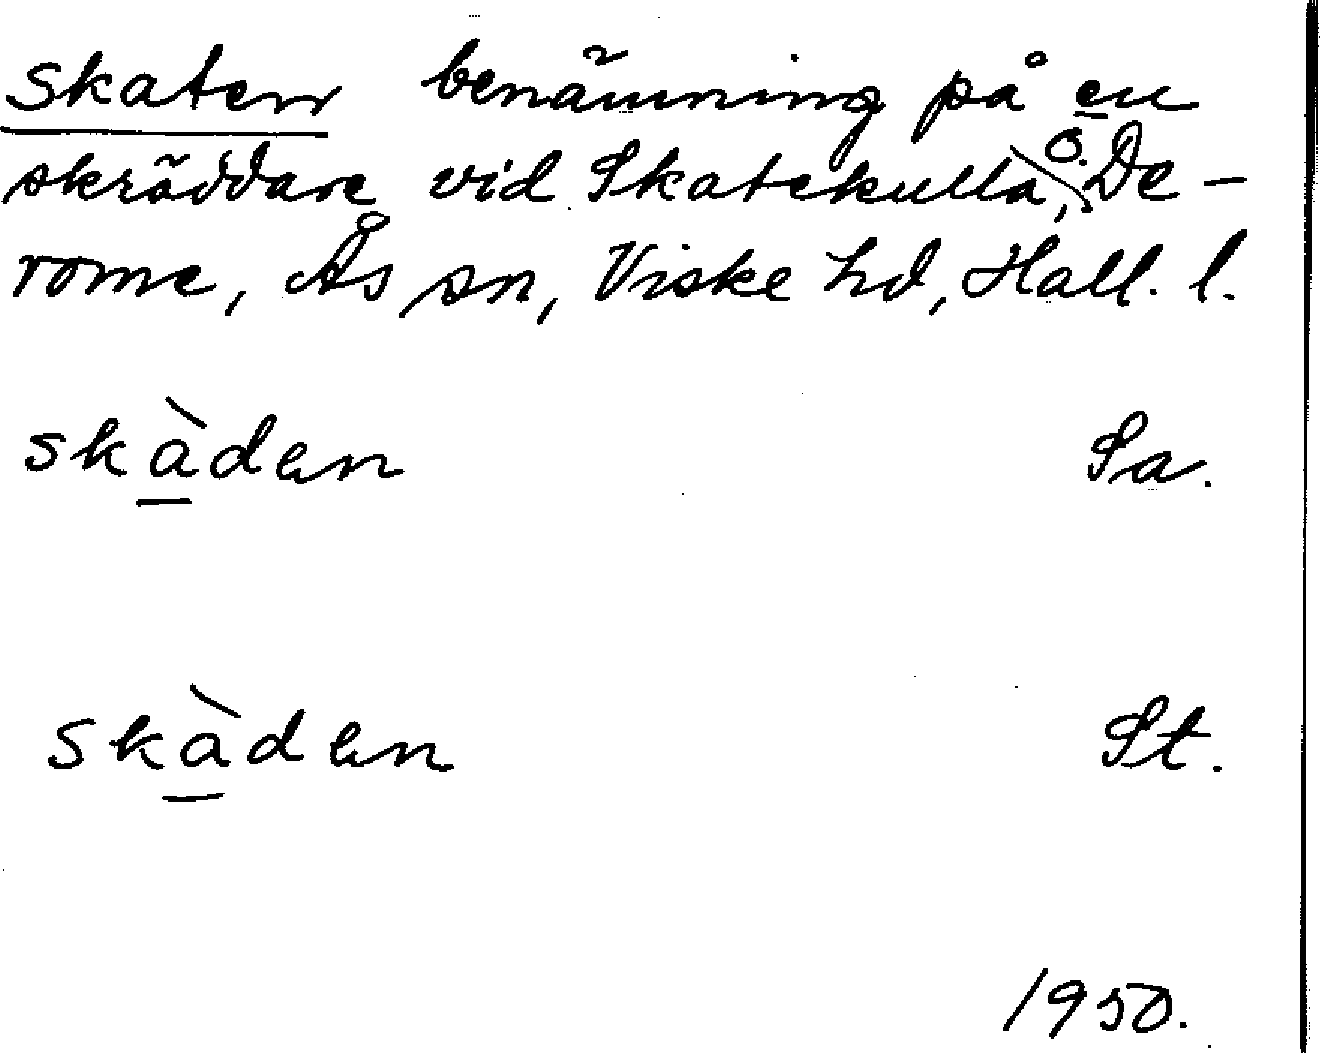 Skaten benämning på en
skräddare vid Skatekulla, Ö. De-
rome, Ås sn, Viske hd, Hall. l.
skàdan Sa.
skàdan St.
1950.